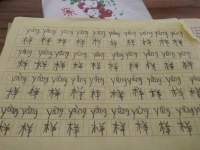 yàng yàng yàng yàng yàng yàng yàng yàng yàng yàng
样 样 样 样 样 样 样 样 样 样
yàng yàng yàng yàng yàng yàng yàng yàng yàng yàng
样 样 样 样 样 样 样 样 样 样
yàng yàng yàng yàng yàng yàng yàng yàng yàng yàng
样 样 样 样 样 样 样 样 样 样
yàng yàng yàng yàng yàng yàng yàng yàng yàng yàng
样 样 样 样 样 样 样 样 样 样